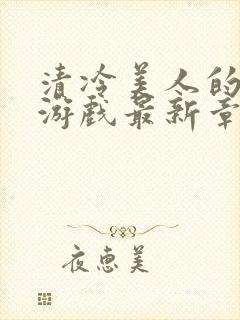 清冷美人的
游戏最新章
夜惠美